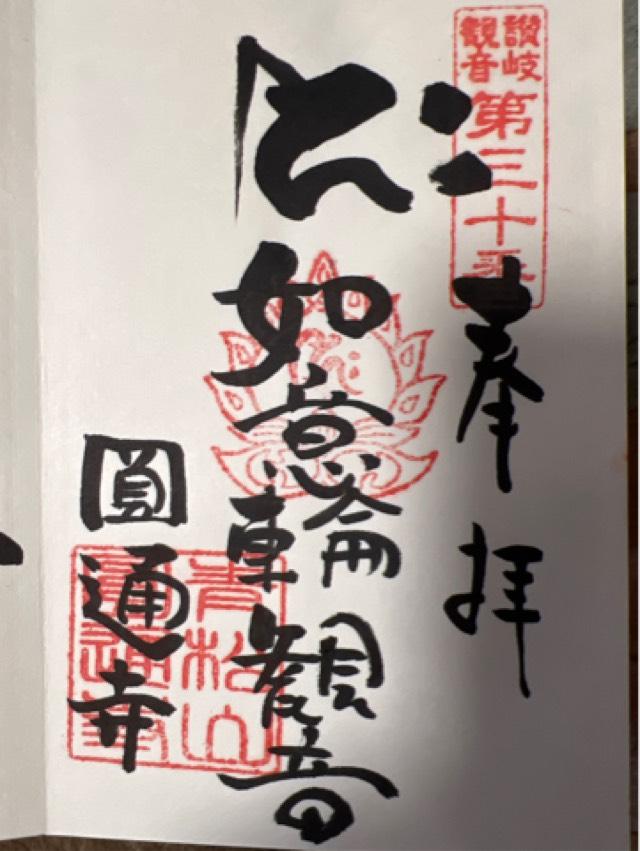 讃岐
観音
第三十番
奉拝
如意輪観音
圓通寺
青松山